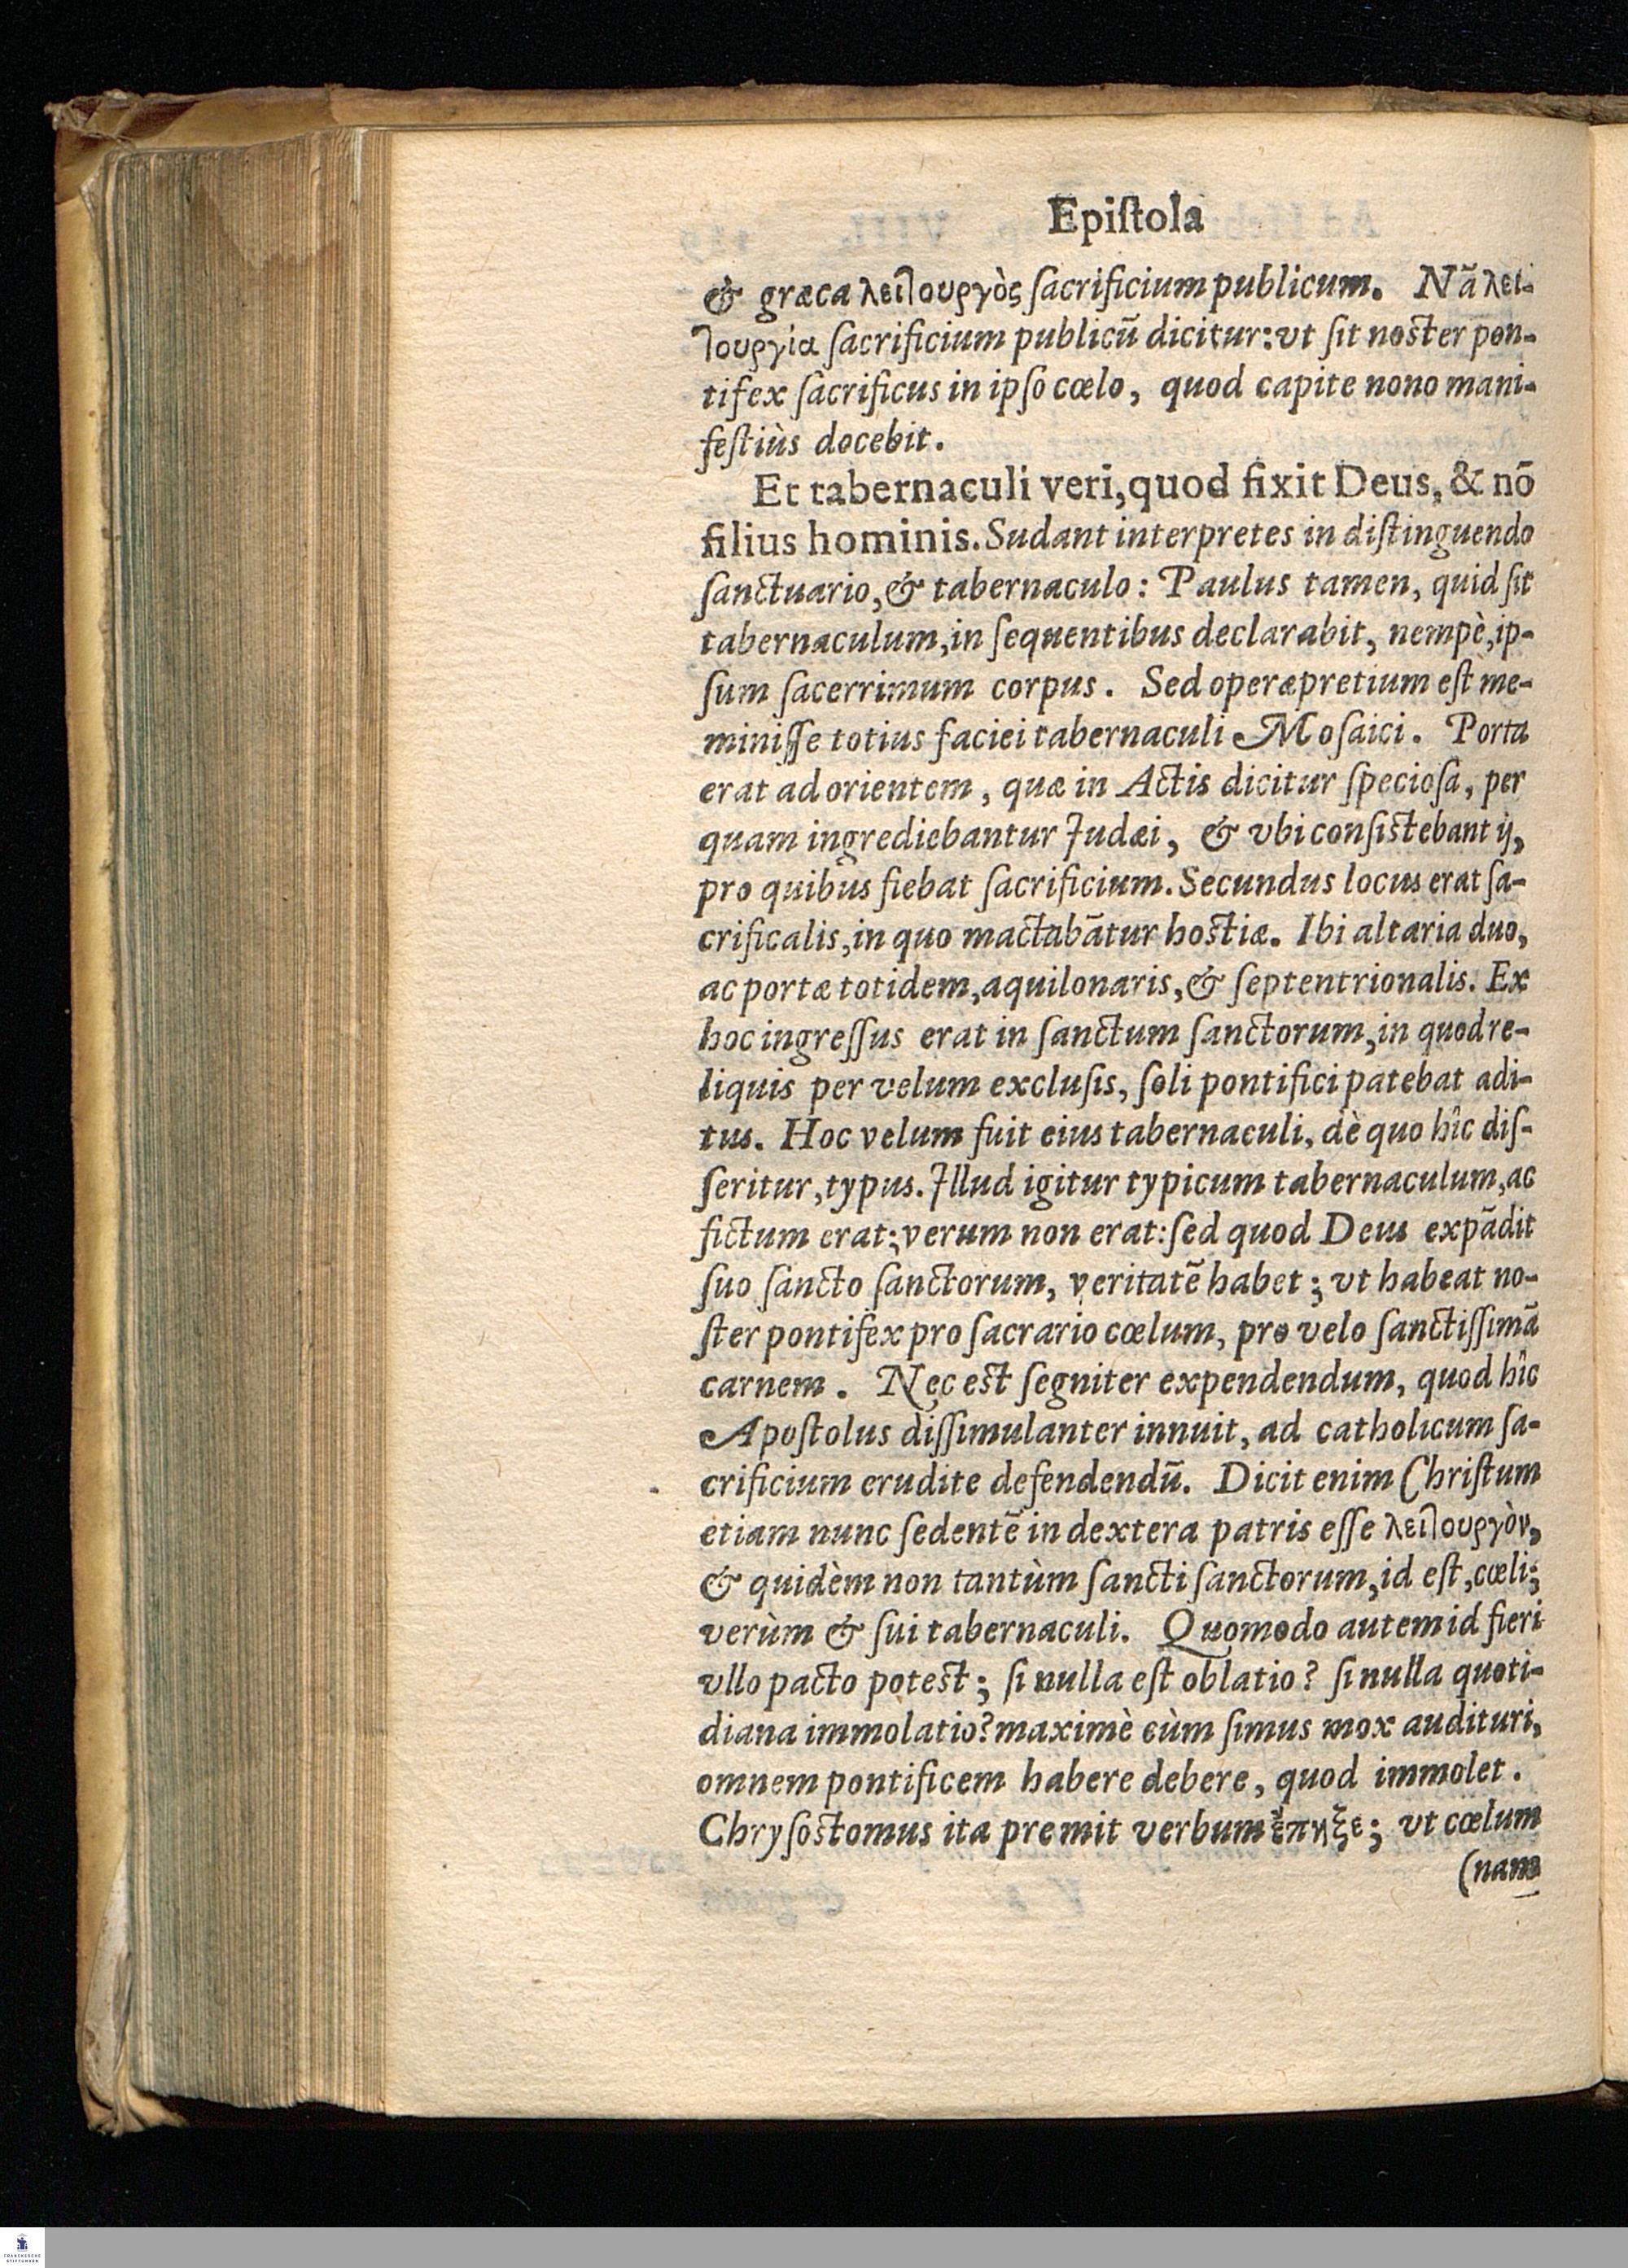 Epiſtola
& græca λειτουργὸς ſacrificium publicum. Nã λει-
τουργία ſacrificium publicũ dicitur: vt ſit noſter pon-
tifex ſacrificus in ipſo cœlo, quod capite nono mani-
feſtiùs docebit.
Et tabernaculi veri, quod fixit Deus, & nõ
filius hominis. Sudant interpretes in diſtinguendo
ſanctuario, & tabernaculo: Paulus tamen, quid ſit
tabernaculum, in ſequentibus declarabit, nempè, ip-
ſum ſacerrimum corpus. Sed operæpretium eſt me-
miniſſe totius faciei tabernaculi Moſaici. Porta
erat ad orientem, quæ in Actis dicitur ſpecioſa, per
quam ingrediebantur Judæi, & vbi conſiſtebant ij,
pro quibus fiebat ſacrificium. Secundus locus erat ſa-
crificalis, in quo mactabãtur hoſtiæ. Ibi altaria duo,
ac portæ totidem, aquilonaris, & ſeptentrionalis. Ex
hoc ingreſſus erat in ſanctum ſanctorum, in quod re-
liquis per velum excluſis, ſoli pontifici patebat adi-
tus. Hoc velum fuit eius tabernaculi, dè quo hîc diſ-
ſeritur, typus. Jllud igitur typicum tabernaculum, ac
fictum erat; verum non erat: ſed quod Deus expãdit
ſuo ſancto ſanctorum, veritatẽ habet; vt habeat no-
ſter pontifex pro ſacrario cœlum, pro velo ſanctiſſimã
carnem. Nec eſt ſegniter expendendum, quod hîc
Apoſtolus diſſimulanter innuit, ad catholicum ſa-
crificium erudite defendendũ. Dicit enim Chriſtum
etiam nunc ſedentẽ in dextera patris eſſe λειτουργὸν,
& quidèm non tantùm ſancti ſanctorum, id eſt, cœli;
verùm & ſui tabernaculi. Quomodo autem id fieri
vllo pacto poteſt; ſi nulla eſt oblatio? ſi nulla quoti-
diana immolatio? maximè cùm ſimus mox audituri,
omnem pontificem habere debere, quod immolet.
Chryſoſtomus ita premit verbum ἔπηξε; vt cœlum
(nam
FRANCKESCHE
STIFTUNGEN